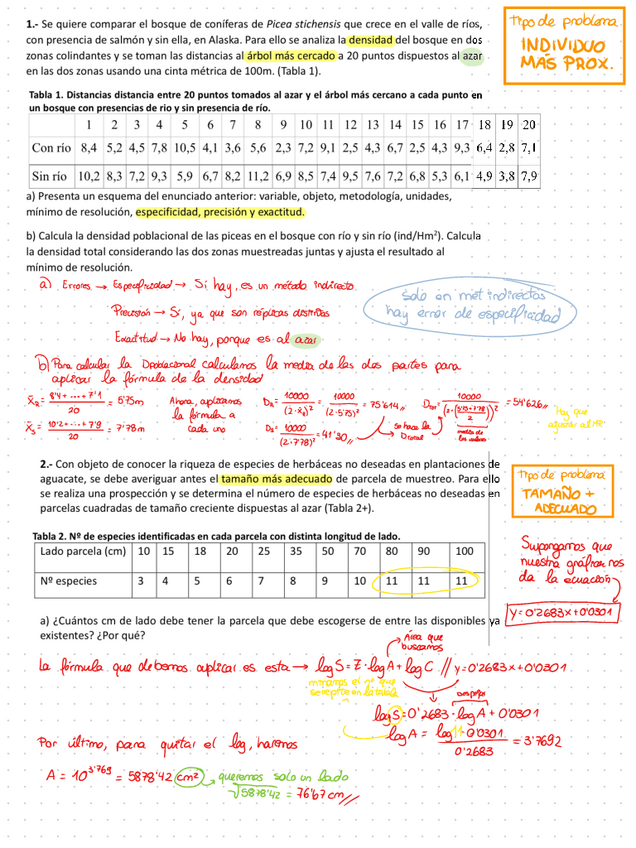 1.- Se quiere comparar el bosque de coníferas de Picea stichensis que crece en el valle de ríos,
con presencia de salmón y sin ella, en Alaska. Para ello se analiza la densidad del bosque en dos
zonas colindantes y se toman las distancias al árbol más cercado a 20 puntos dispuestos al azar
en las dos zonas usando una cinta métrica de 100m. (Tabla 1).
Tipo de problema
INDIVIDUO
MÁS PROX.
Tabla 1. Distancias distancia entre 20 puntos tomados al azar y el árbol más cercano a cada punto en
un bosque con presencias de rio y sin presencia de río.
1 2 3 4 5 6 7 8 9 10 11 12 13 14 15 16 17 18 19 20
Con río 8,4 5,2 4,5 7,8 10,5 4,1 3,6 5,6 2,3 7,2 9,1 2,5 4,3 6,7 2,5 4,3 9,3 6,4 2,8 7,1
Sin río 10,2 8,3 7,2 9,3 5,9 6,7 8,2 11,2 6,9 8,5 7,4 9,5 7,6 7,2 6,8 5,3 6,1 4,9 3,8 7,9
a) Presenta un esquema del enunciado anterior: variable, objeto, metodología, unidades,
mínimo de resolución, especificidad, precisión y exactitud.
b) Calcula la densidad poblacional de las piceas en el bosque con río y sin río (ind/Hm²). Calcula
la densidad total considerando las dos zonas muestreadas juntas y ajusta el resultado al
mínimo de resolución.
a) Errores → Especificidad → Sí hay, es un método indirecto.
Precisión → Sí, ya que son réplicas distintas
Exactitud → No hay, porque es al azar
Solo en mét indirectos
hay error de especificidad
b) Para calcular la Dpoblacional calculamos la media de las dos partes para
aplicar la fórmula de la densidad
X̄R = 8'4 + ... + 7'1 / 20 = 5'75m
X̄S = 10'2 + ... + 7'9 / 20 = 7'78m
Ahora, aplicamos
la fórmula a
cada uno
DR = 10000 / (2·x̄R)² = 10000 / (2·5'75)² = 75'614
DS = 10000 / (2·7'78)² = 41'30
se hace la
Dtotal
Dtot = 10000 / (2·(5'75+7'78 / 2))² = 54'626
media de
los valores
Hay que
ajustar al MR
2.- Con objeto de conocer la riqueza de especies de herbáceas no deseadas en plantaciones de
aguacate, se debe averiguar antes el tamaño más adecuado de parcela de muestreo. Para ello
se realiza una prospección y se determina el número de especies de herbáceas no deseadas en
parcelas cuadradas de tamaño creciente dispuestas al azar (Tabla 2+).
Tipo de problema
TAMAÑO +
ADECUADO
Tabla 2. Nº de especies identificadas en cada parcela con distinta longitud de lado.
Lado parcela (cm) 10 15 18 20 25 35 50 70 80 90 100
Nº especies 3 4 5 6 7 8 9 10 11 11 11
Supongamos que
nuestra gráfica nos
da la ecuación
y=0'2683x+0'0301
a) ¿Cuántos cm de lado debe tener la parcela que debe escogerse de entre las disponibles ya
existentes? ¿Por qué?
Área que
buscamos
La fórmula que debemos aplicar es esta → log S = Z · log A + log C // y=0'2683x+0'0301
miramos el nº que
se repite en la tabla
despejar
log S = 0'2683 · log A + 0'0301
log A = log 11 - 0'0301 / 0'2683 = 3'7692
Por último, para quitar el log, haremos
A = 10^3'769 = 5878'42 cm² → queremos solo un lado
√5878'42 = 76'67 cm